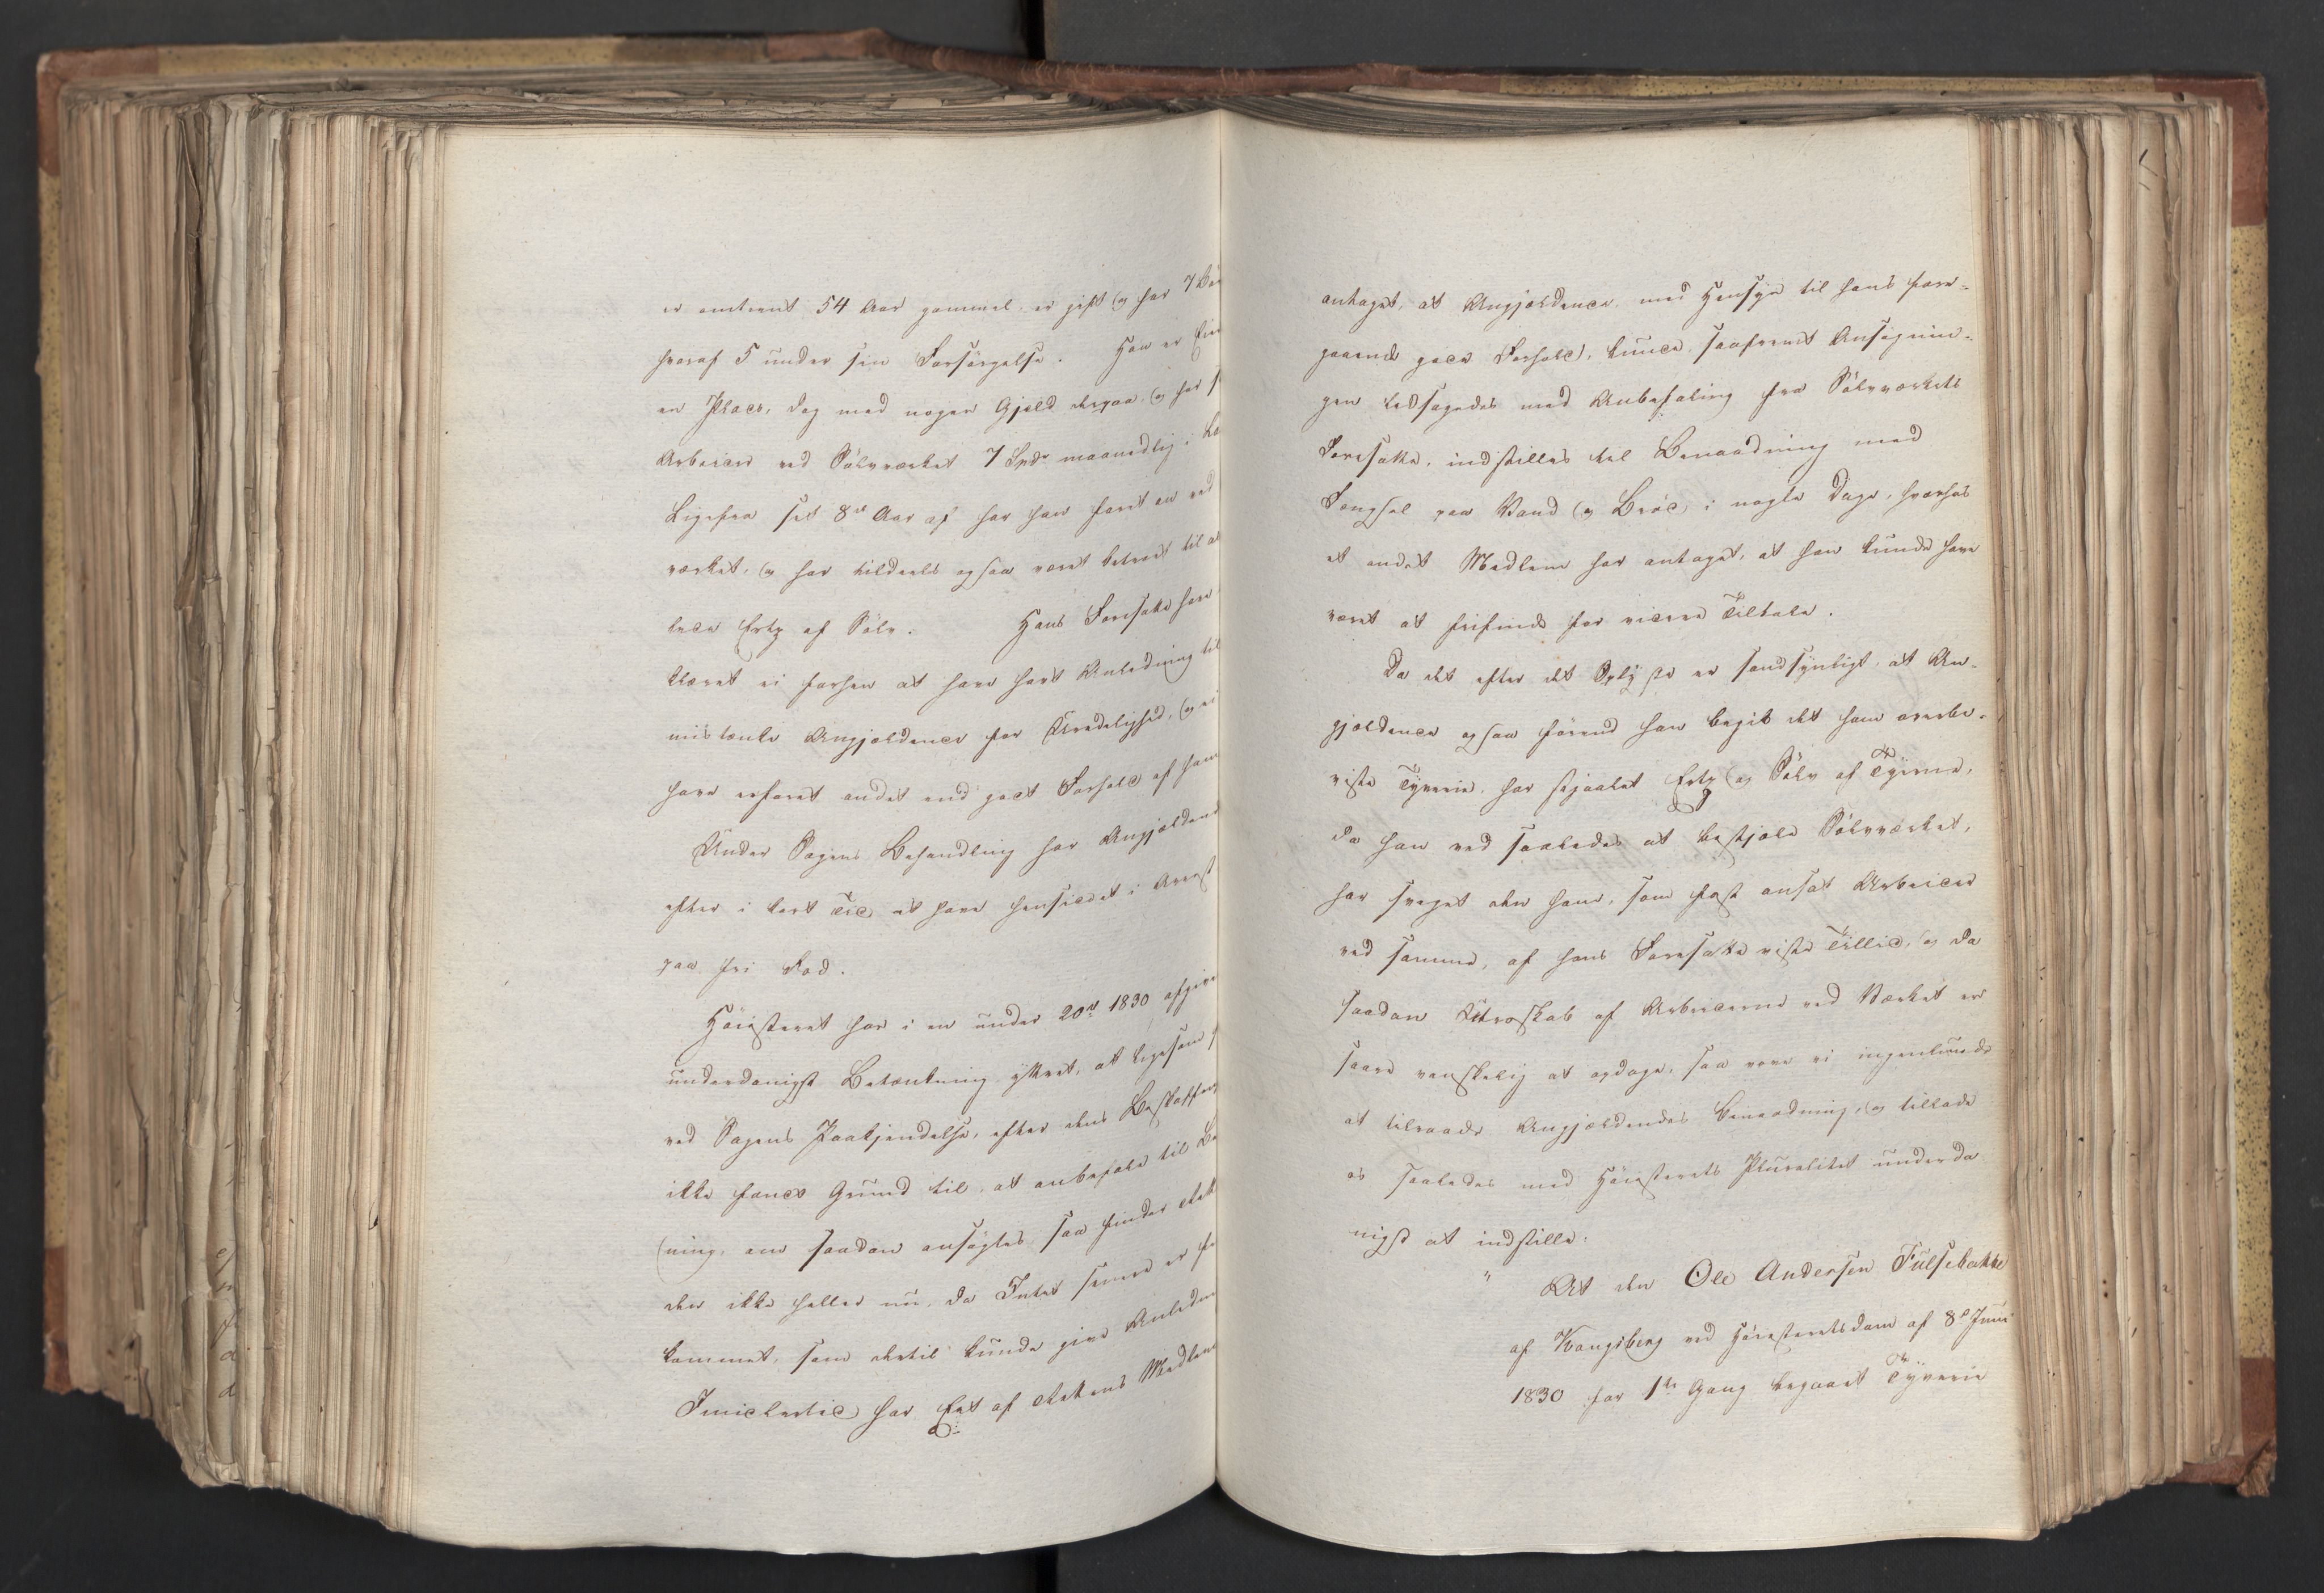 er omtrent 54 Aar gammel, er gift og har 7 Bør
hvoraf 5 under sin Forsørgelse. Han er Eier
en Plads, dog med nogen Gjeld derpaa, og har
Arbeider ved Sølvværket 7 Spdr maanedlig i
Ligefra sit 8de Aar af har han faret en ved
værket, og har tildeels ogsaa været betroet til at
lede Ertz af Sølv. Hans Foresatte have
klæret ei forhen at have havt Anledning til
mistænke Angjældende for Utroelighed, og ei
have erfaret andet end godt Forhold af ham
Under Sagens Behandling har Angjældende
efter i kort Tid at have hensiddet i Arrest
paa fri Fod.
Høiesteret har i en under 20de 1830 afgiven
underdanigst Betænkning yttret, at ligesom
ved Sagens Paakjendelse, efter dens Beskaffen
ikke fandt Grund til at anbefale til Be
ning, om saadan ansøgtes, saa finder Rett
den ikke heller nu, da Intet senere er fr
kommet, som dertil kunde give Anledn
Imidlertid har Eet af Rettens Medlem
antaget, at Angjældende, med Hensyn til hans fore-
gaaende gode Forhold, kunde, saafremt Ansøgnin-
gen ledsagedes med Anbefaling fra Sølvværkets
Foresatte, indstilles til Benaadning med
Fængsel paa Vand og Brød i nogle Dage, hvorhos
et andet Medlem har antaget, at han kunde have
været at frifinde for videre Tiltale.
Da det efter det Oplyste er sandsynligt, at An-
gjældende ogsaa førend han begik det ham overbe-
viste Tyverie, har stjaalet Ertz og Sølv af Tyverie,
da han ved saaledes at bestjæle Sølvværket,
har sveget den ham, som fast ansat Arbeider
ved samme, af hans Foresatte viste Tillid, og da
saadan Utroskab af Arbeiderne ved Værket er
saare vanskelig at opdage, saa vove vi ingenlunde
at tilraade Angjældendes Benaadning, og tillade
os saaledes med Høiesterets Pluralitet underda
nigst at indstille:
" At den Ole Andersen Fulsebakke
af Kongsberg ved Høiesteretsdom af 8de Juni
1830 for 1ste Gang begaaet Tyverie